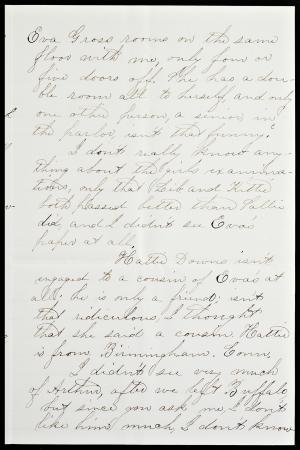 Eva Gross rooms on the same
floor with me, only four or
five doors off. She has a dou-
ble room all to herself, and only
one other person, a senior, in
the parlor, isn't that funny?
I don't really know any-
thing about the girls examina-
tions, only that Lib and Hattie
both passed better than Sallie
did, and I didn't see Eva's
paper at all.
Hattie Downs isn't
engaged to a cousin of Eva's at
all; he is only a friend; isn't
that ridiculous, I thought
that she said a cousin. Hattie
is from Birmingham. Conn.
I didn't see very much
of Arthur, after we left Buffalo,
but since you ask me, I don't
like him much, I don't know